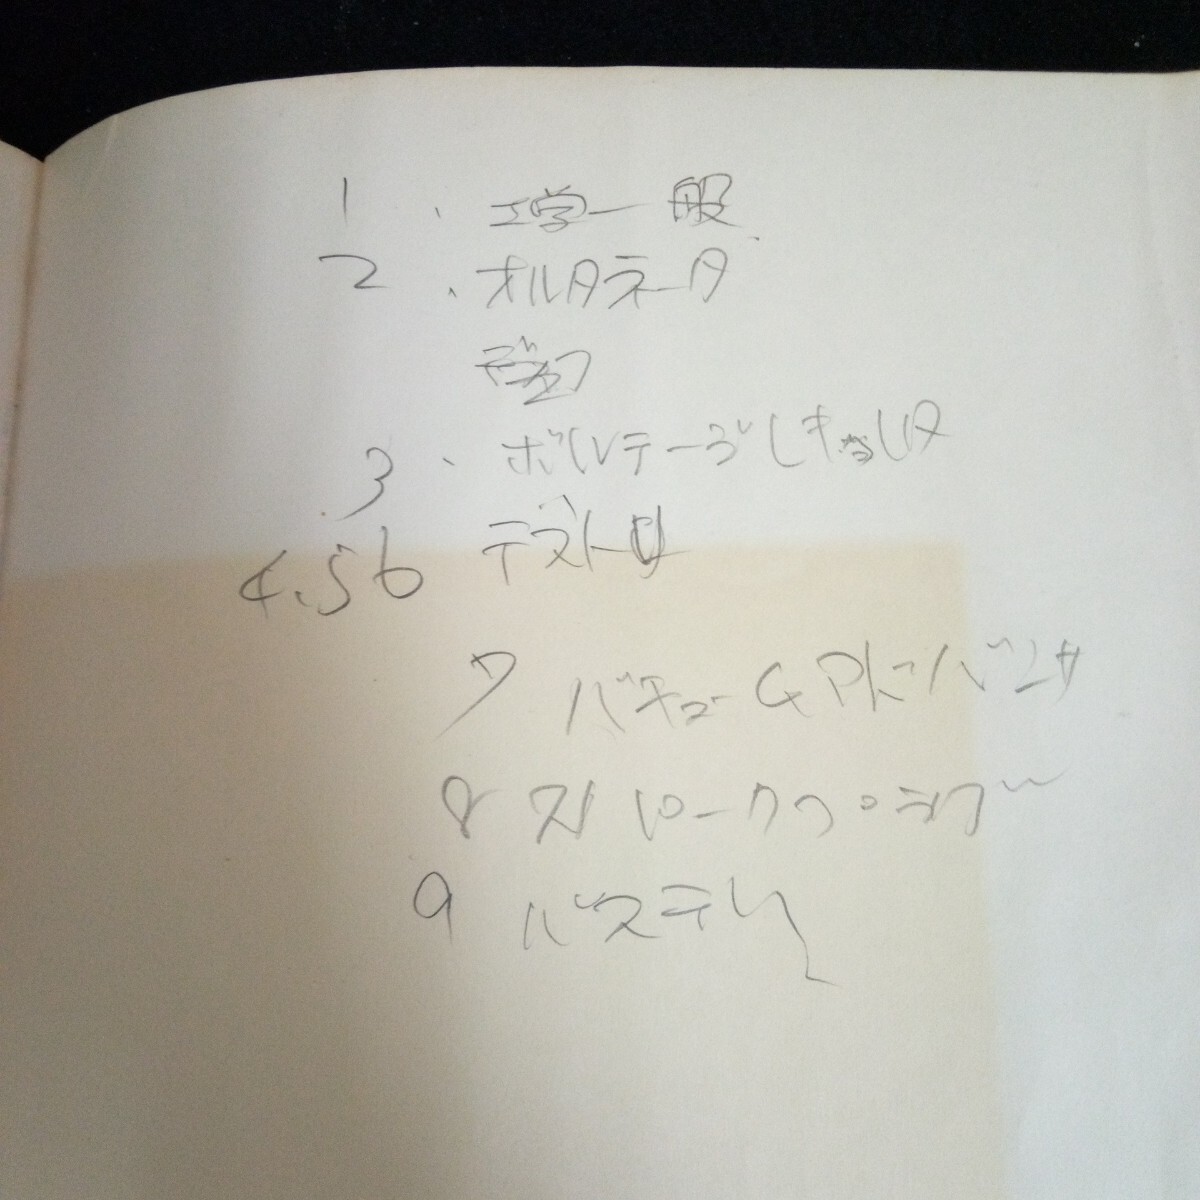 1、工学一般
2、オルタネータ
3、ボルテージレギュレタ
4.56 テスト
7 バキュームアドバンサ
8 スパークプラグ
9 バステリ